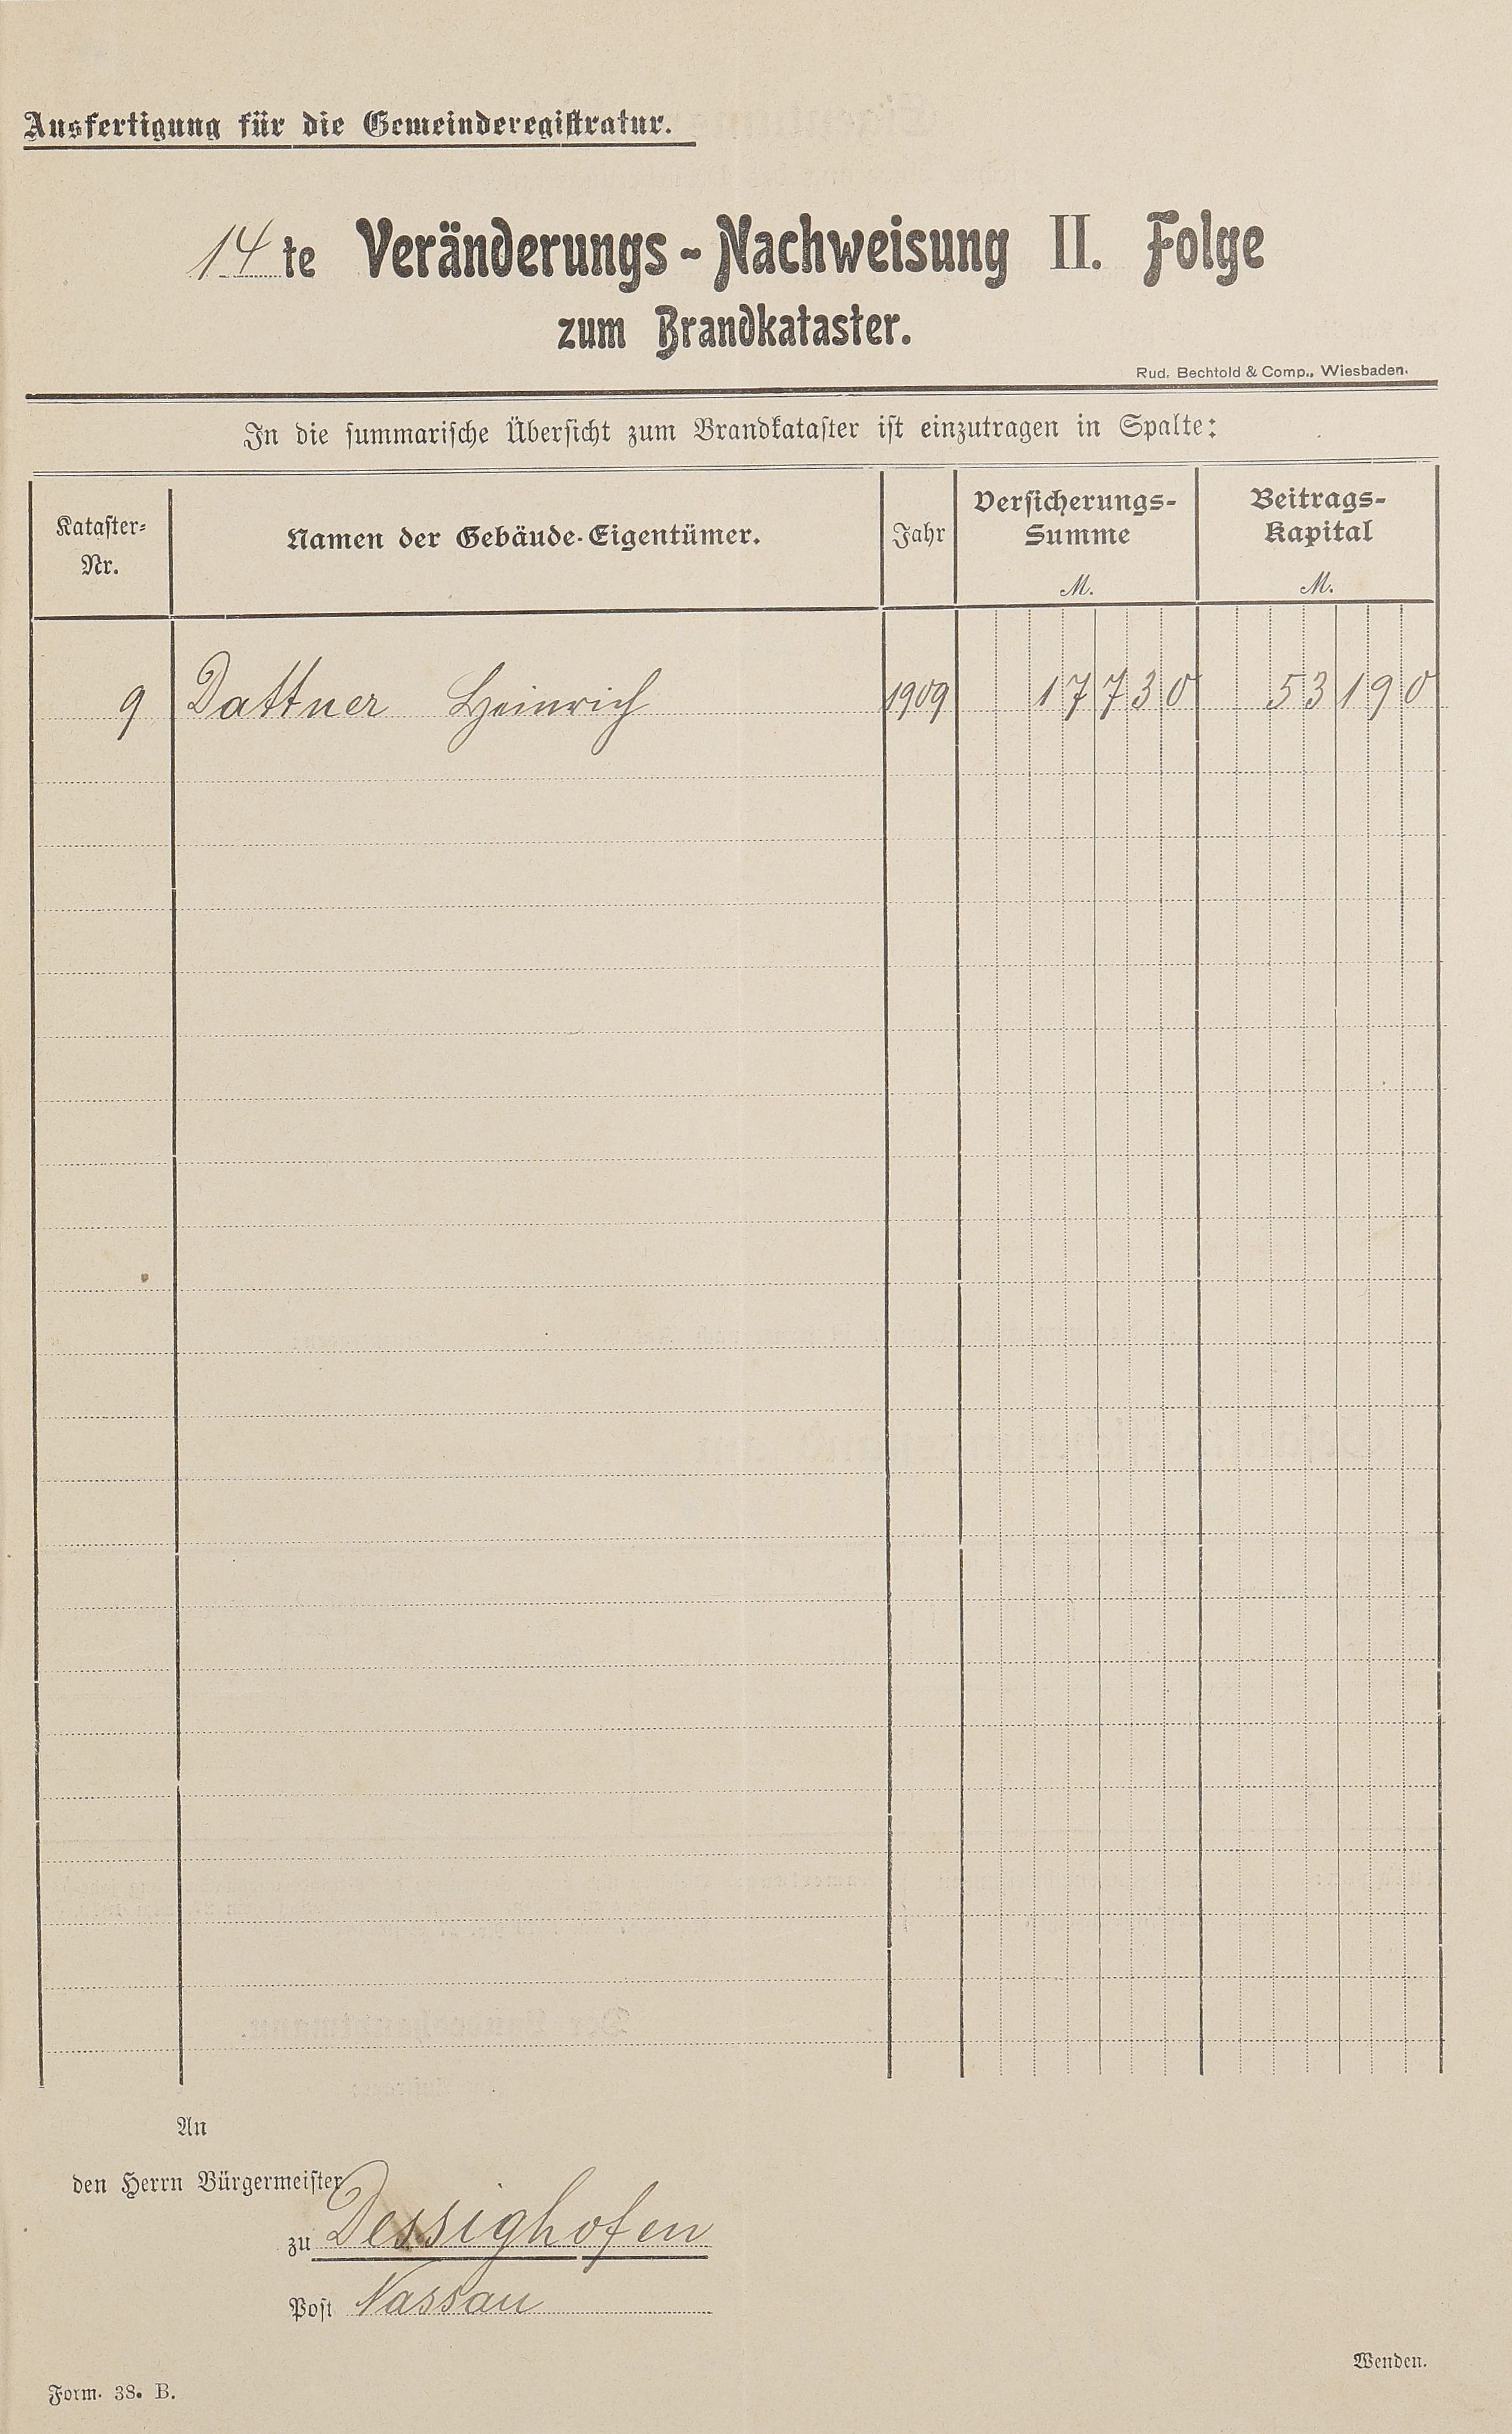 Ausfertigung für die Gemeinderegistratur.
14te Veränderungs-Nachweisung II. Folge
zum Brandkataster.
Rud. Bechtold & Comp., Wiesbaden.
In die summarische Übersicht zum Brandkataster ist einzutragen in Spalte:
Kataster-Nr. Namen der Gebäude-Eigentümer. Jahr Versicherungs-Summe M. Beitrags-Kapital M.
9 Dattner Heinrich 1909 17730 53190
An
den Herrn Bürgermeister
zu Dessighofen
Post Nassau
Wenden.
Form. 38. B.